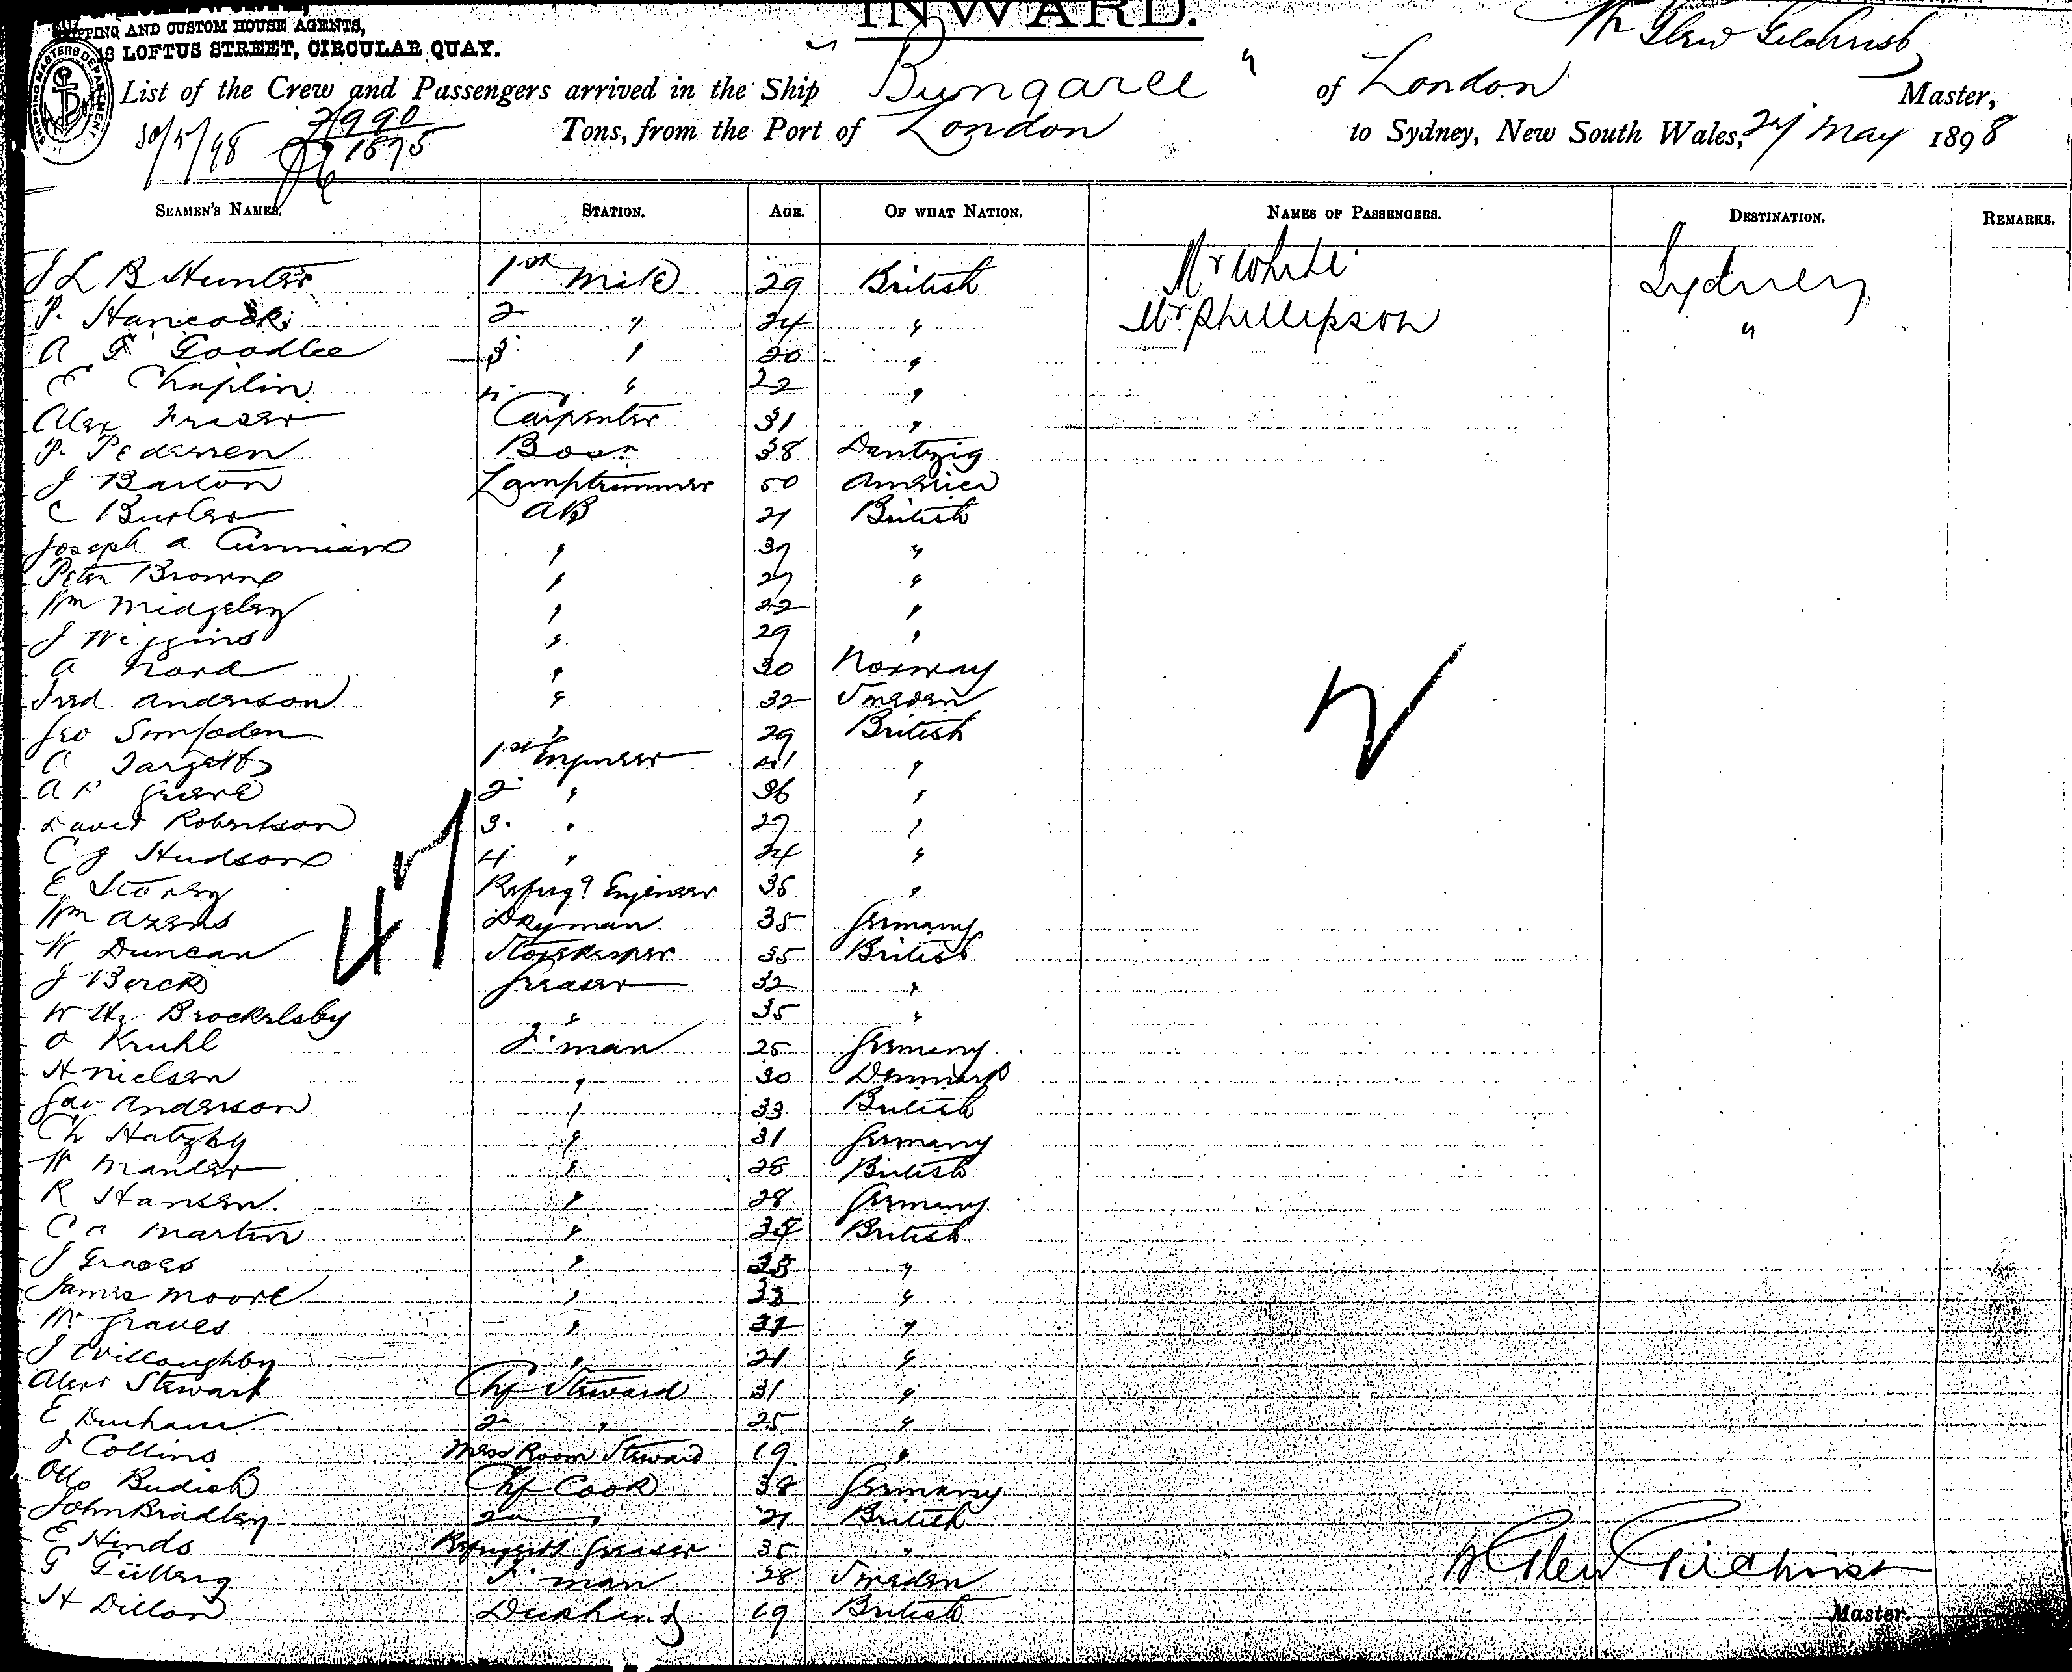 INWARD.
SHIPPING AND CUSTOM HOUSE AGENTS,
LOFTUS STREET, CIRCULAR QUAY.
Wm Glew Gilchrist
List of the Crew and Passengers arrived in the Ship "Bungaree" of London Master,
30/5/98 2990 Tons, from the Port of London to Sydney, New South Wales, 27 May 1898
1875
SEAMEN'S NAMES. STATION. AGE. OF WHAT NATION. NAMES OF PASSENGERS. DESTINATION. REMARKS.
J L B Hunter 1st Mate 29 British Mr White Sydney
P. Hancock 2 " 24 " Mr Phillipson "
A F Goodlee 3 " 20 "
E Chaplin 4 " 22 "
Alex Fraser Carpenter 31 "
P. Pedersen Bosn 38 Dantzig
J Barton Lamptrimmer 50 America
C Butler AB 21 British
Joseph A " 37 "
Peter Browne " 27 "
Wm Midgeley " 22 "
J Wiggins " 29 "
A Nord " 30 Norway
Fred Anderson " 32 Sweden
Geo " 29 British
C Targett 1st Engineer 41 "
A 2 " 36 "
David Robertson 3. " 27 "
C J Hudson 4 " 24 "
E Storey Refrigr Engineer 35 "
Wm Arens Dkyman 35 Germany
W Duncan Storekeeper 35 British
J Berck Greaser 32 "
W Hy Brockelsby " 35 "
O Kruhl F. man 25 Germany
H Nielsen " 30 Denmark
Jas Anderson " 33 British
Ch " 31 Germany
W Manler " 28 British
R Hansen " 28 Germany
C A Martin " 34 British
J Graves " "
James Moore " 33 "
W Graves " "
J Willoughby " 21 "
Alexr Stewart Chf Steward 31 "
E Durham 2 " 25 "
J Collins Mess Room Steward 19 "
Otto Budich Chf Cook 38 Germany
John Bradley 2 " 21 British
E Hinds Greaser 35 "
G F. man 28 Sweden
H Dillon Deckhand 19 British
47
2
W Glew Gilchrist
Master.